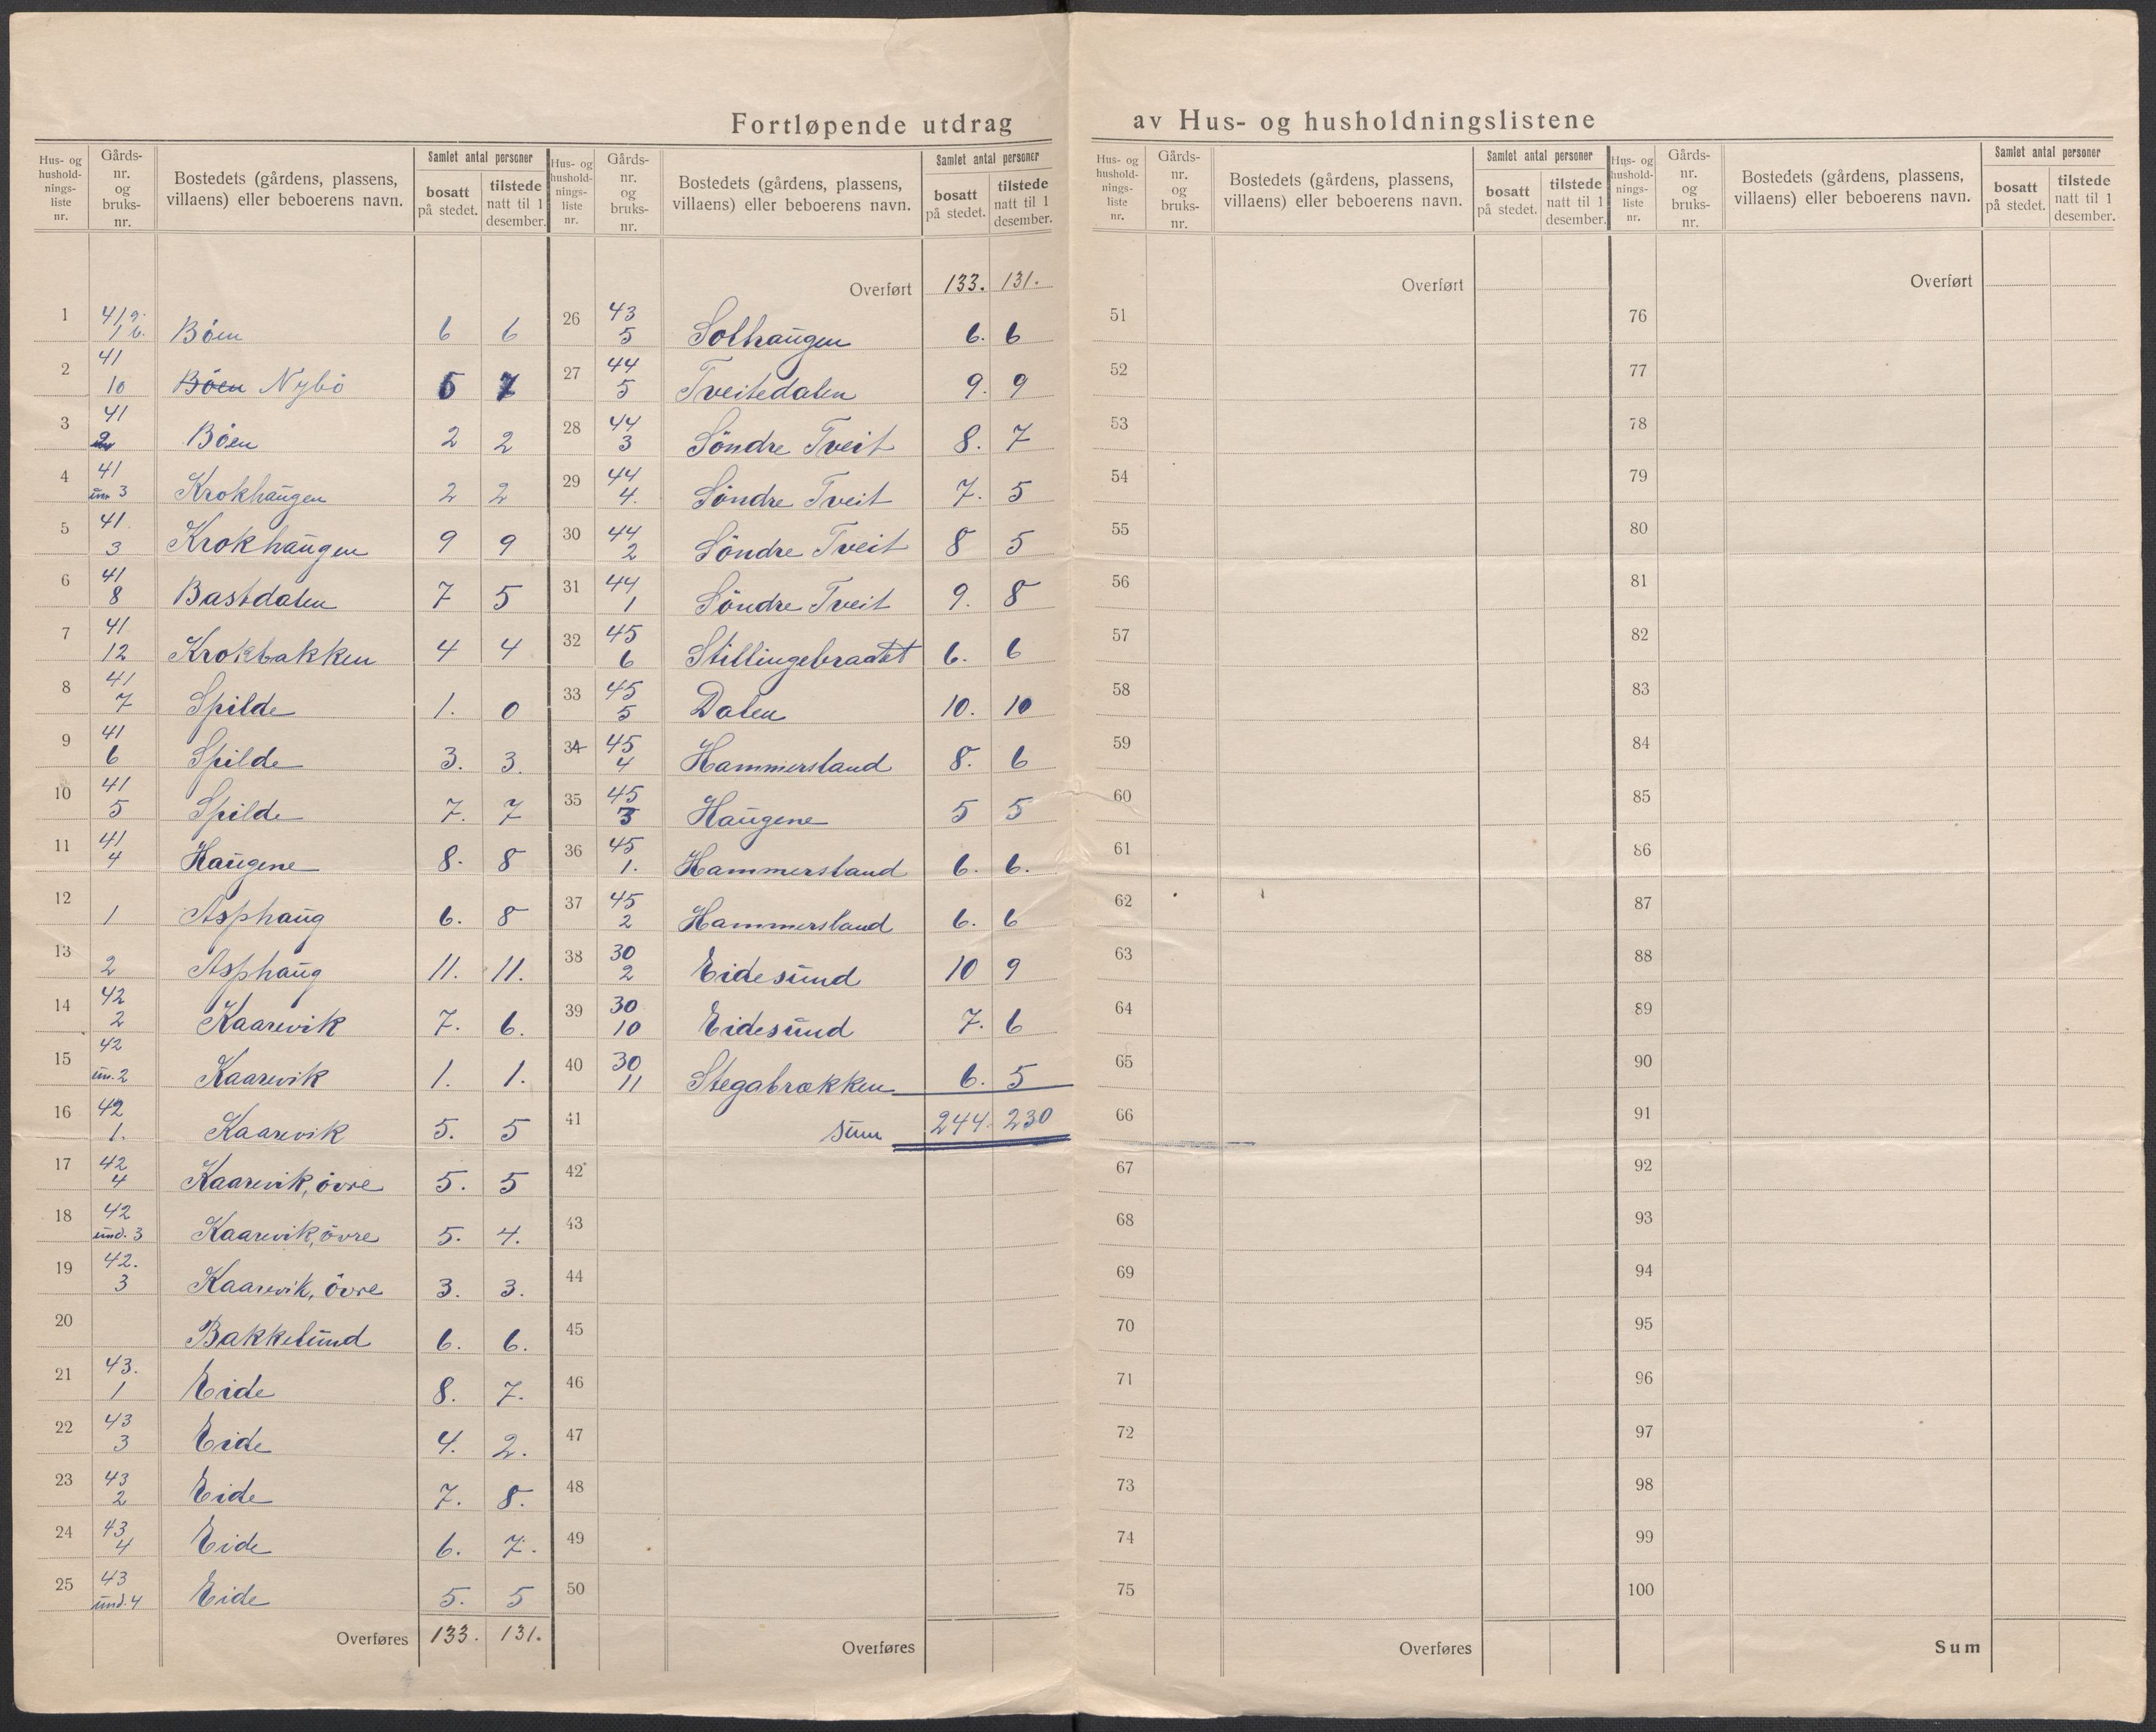 Fortløpende utdrag av Hus- og husholdningslistene
Hus- og hushold- nings- liste nr. | Gårds- nr. og bruks- nr. | Bostedets (gårdens, plassens, villaens) eller beboerens navn. | Samlet antal personer | bosatt på stedet. | tilstede natt til 1 desember.
1 41 Böen 6 6
2 41 10 Böen Nybö 5 7
3 41 2 Böen 2 2
4 41 un 3 Krokhaugen 2 2
5 41 3 Krokhaugen 9 9
6 41 8 Bastdalen 7 5
7 41 12 Krokbakken 4 4
8 41 7 Spilde 1. 0
9 41 6 Spilde 3. 3.
10 41 5 Spilde 7. 7
11 41 4 Haugene 8. 8
12 1 Asphaug 6. 8
13 2 Asphaug 11. 11.
14 42 2 Kaarevik 7. 6.
15 42 un. 2 Kaarevik 1. 1.
16 42 1. Kaarevik 5. 5
17 42 4 Kaarevik, övre 5. 5
18 42 und. 3 Kaarevik, övre 5. 4.
19 42. 3 Kaarevik, övre 3. 3.
20 Bakkelund 6. 6.
21 43. 1 Eide 8. 7.
22 43 3 Eide 4. 2.
23 43 2 Eide 7. 8.
24 43 4 Eide 6. 7.
25 43 und. 4 Eide 5. 5
Overføres 133. 131.
Hus- og hushold- nings- liste nr. | Gårds- nr. og bruks- nr. | Bostedets (gårdens, plassens, villaens) eller beboerens navn. | Samlet antal personer | bosatt på stedet. | tilstede natt til 1 desember.
Overført 133. 131.
26 43 5 Solhaugen 6. 6
27 44 5 Tveitedalen 9. 9
28 44 3 Söndre Tveit 8. 7
29 44 4. Söndre Tveit 7. 5
30 44 2 Söndre Tveit 8 5
31 44 1 Söndre Tveit 9. 8
32 45 6 Stillingebraatet 6. 6
33 45 5 Dalen 10. 10
34 45 4 Hammersland 8. 6
35 45 3 Haugene 5 5
36 45 1. Hammersland 6. 6.
37 45 2 Hammersland 6. 6
38 30 2 Eidesund 10 9
39 30 10 Eidesund 7. 6
40 30 11 Stegabrækken 6. 5
41 sum 244. 230
42
43
44
45
46
47
48
49
50
Overføres
Hus- og hushold- nings- liste nr. | Gårds- nr. og bruks- nr. | Bostedets (gårdens, plassens, villaens) eller beboerens navn. | Samlet antal personer | bosatt på stedet. | tilstede natt til 1 desember.
Overført
51
52
53
54
55
56
57
58
59
60
61
62
63
64
65
66
67
68
69
70
71
72
73
74
75
Overføres
Hus- og hushold- nings- liste nr. | Gårds- nr. og bruks- nr. | Bostedets (gårdens, plassens, villaens) eller beboerens navn. | Samlet antal personer | bosatt på stedet. | tilstede natt til 1 desember.
Overført
76
77
78
79
80
81
82
83
84
85
86
87
88
89
90
91
92
93
94
95
96
97
98
99
100
Sum